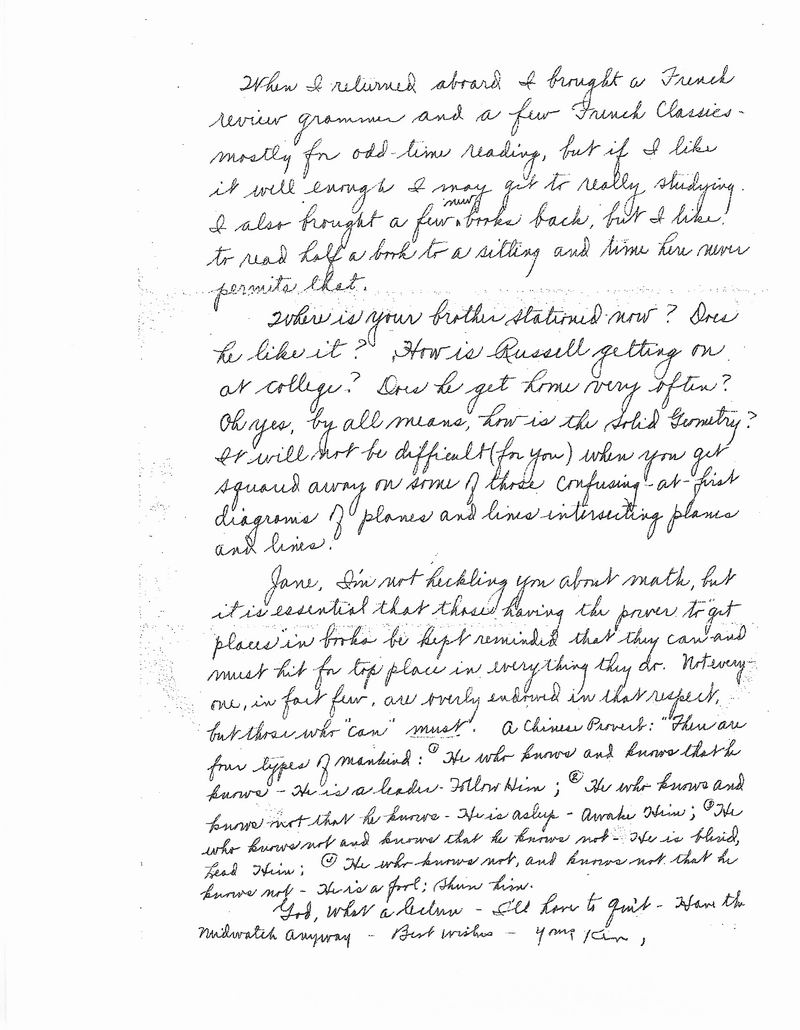 When I returned aboard I brought a French
review grammer and a few French Classics -
mostly for odd-time reading, but if I like
it well enough I may get to really studying.
I also brought a few new books back, but I like
to read half a book to a sitting and time here never
permits that.
Where is your brother stationed now? Does
he like it? How is Russell getting on
at college? Does he get home very often?
Oh yes, by all means, how is the Solid Geometry?
It will not be difficult (for you) when you get
squared away on some of those confusing-at-first
diagrams of planes and lines intersecting planes
and lines.
Jane, I'm not heckling you about math, but
it is essential that those having the power to "get
places" in books be kept reminded that they can and
must hit for top place in everything they do. Not every-
one, in fact few, are overly endowed in that respect,
but those who "can" must. A Chinese Proverb: "There are
four types of mankind: ① He who knows and knows that he
knows - He is a leader - Follow Him; ② He who knows and
knows not that he knows - He is asleep - Awake Him; ③ He
who knows not and knows that he knows not - He is blind,
Lead Him; ④ He who knows not, and knows not that he
knows not - He is a fool; Shun him.
God, what a lecture - I'll have to quit - Have the
Midwatch anyway - Best Wishes -